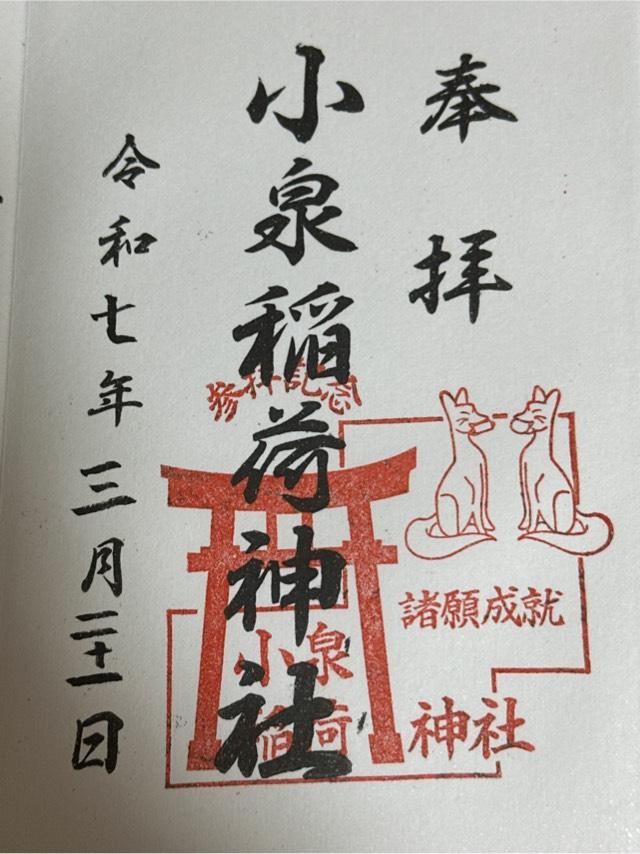 奉拝
小泉稲荷神社
令和七年三月二十一日
参拝記念
諸願成就
小泉
稲荷
神社